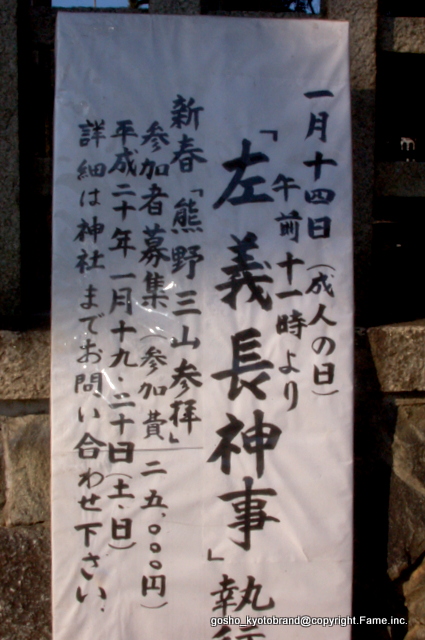 一月十四日（成人の日）
午前十一時より
「左義長神事」執
新春「熊野三山参拝」
参加者募集（参加費二五、〇〇〇円）
平成二十年一月十九、二十日（土、日）
詳細は神社までお問い合わせ下さい、
gosho_kyotobrand@copyright.Fame.inc.